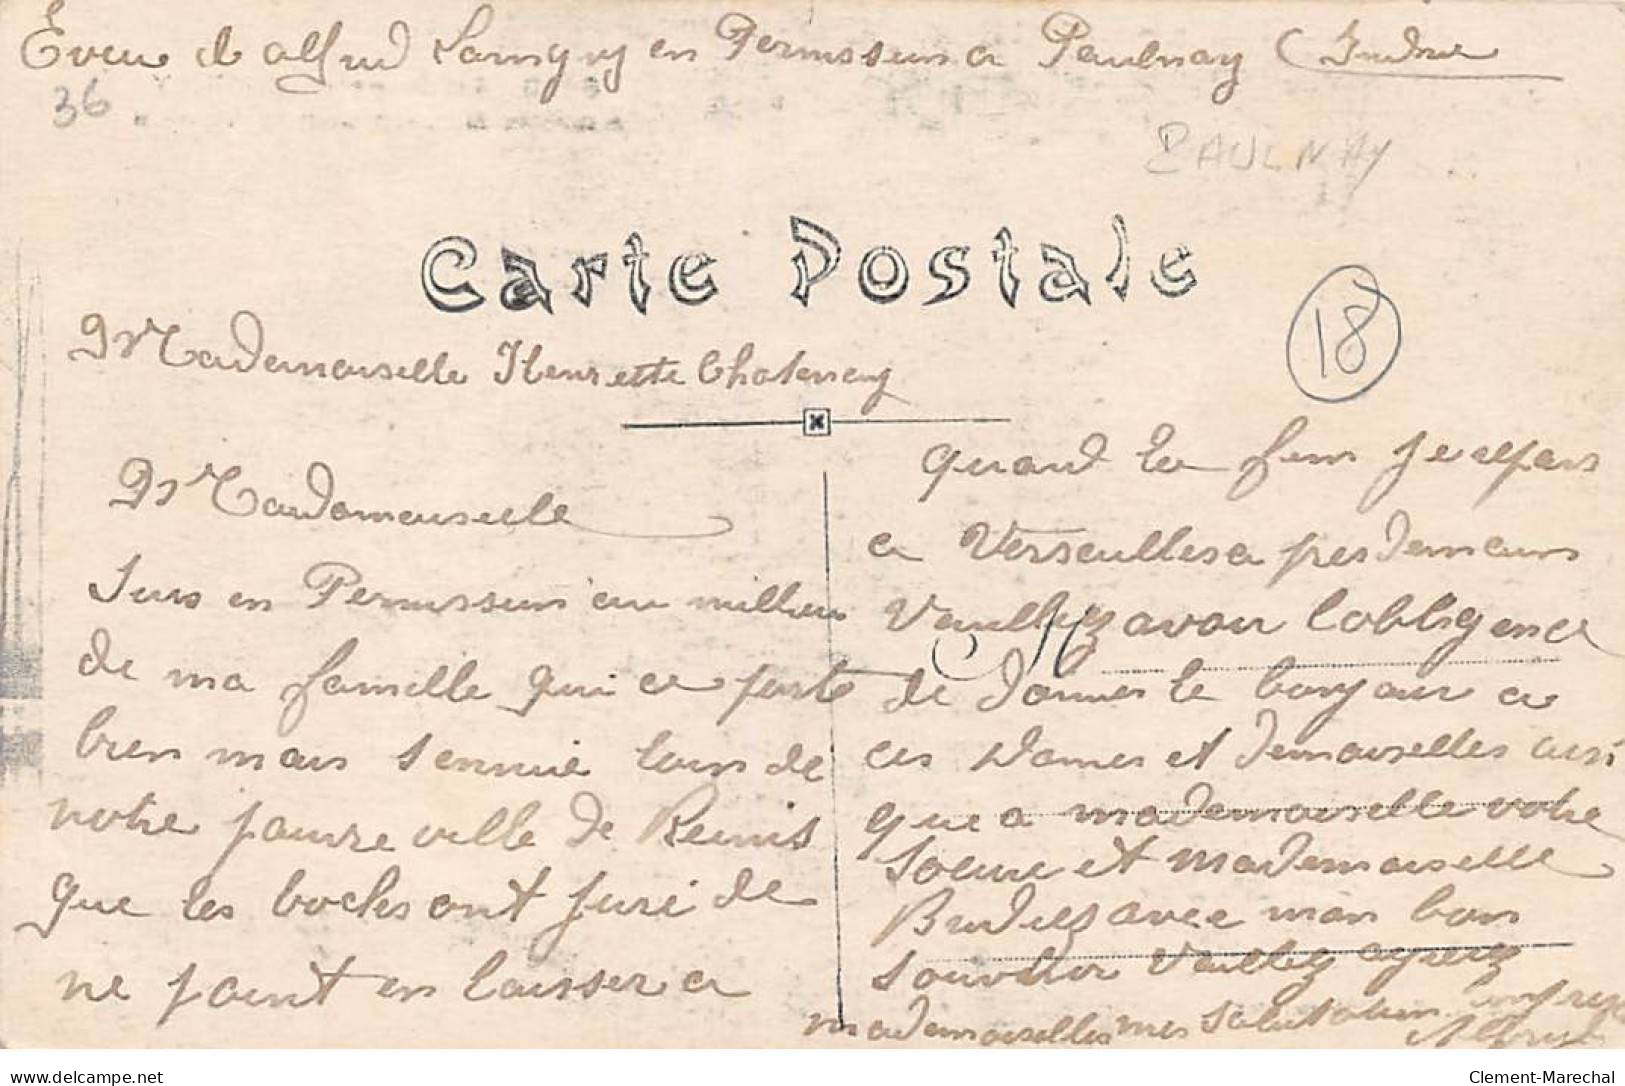 Envu de alfred Lamgny en Permisseun a Paulnay (Indre
36
PAULNAY
Carte Postale
18
Mademoiselle Henriette Chatenay
Mademoiselle
Suis en Permisseun au millieu
de ma famille qui ce porte
bien mais sennuie loin de
notre pauvre ville de Reims
que les boches ont juré de
ne point en laisser a
quand la fin Je repars
a Versailles a pres demain
Veulliez avoir lobligence
de donner le bonjour a
ces Dames et demoiselles ausi
que a mademoiselle votre
Soeure et Mademoiselle
avec mon bon
souvenir Veulliez agreez
mademoiselles mes Salutation empress
Alfred
Clement-Marechal
delcampe.net